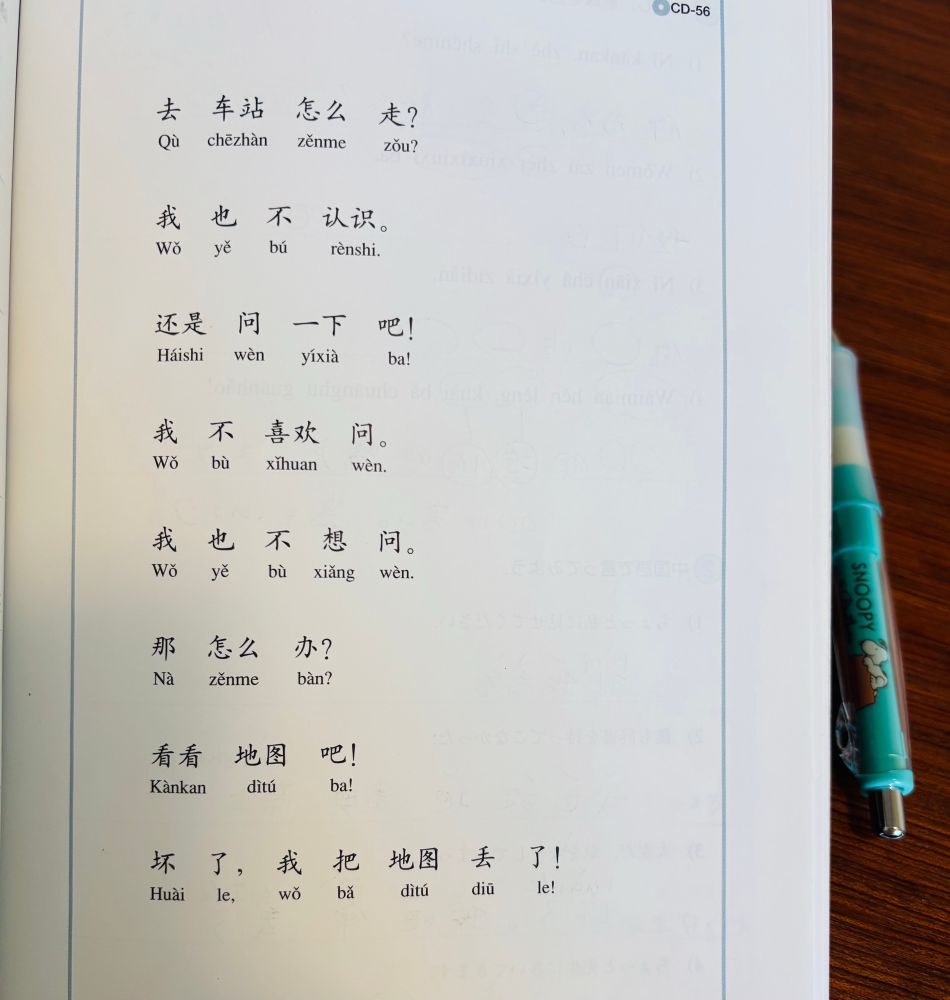 CD-56
去 车站 怎么 走?
Qù chēzhàn zěnme zǒu?
我 也 不 认识。
Wǒ yě bú rènshi.
还是 问 一下 吧!
Háishi wèn yíxià ba!
我 不 喜欢 问。
Wǒ bù xǐhuan wèn.
我 也 不 想 问。
Wǒ yě bù xiǎng wèn.
那 怎么 办?
Nà zěnme bàn?
看看 地图 吧!
Kànkan dìtú ba!
坏 了, 我 把 地图 丢 了!
Huài le, wǒ bǎ dìtú diū le!
SNOOPY